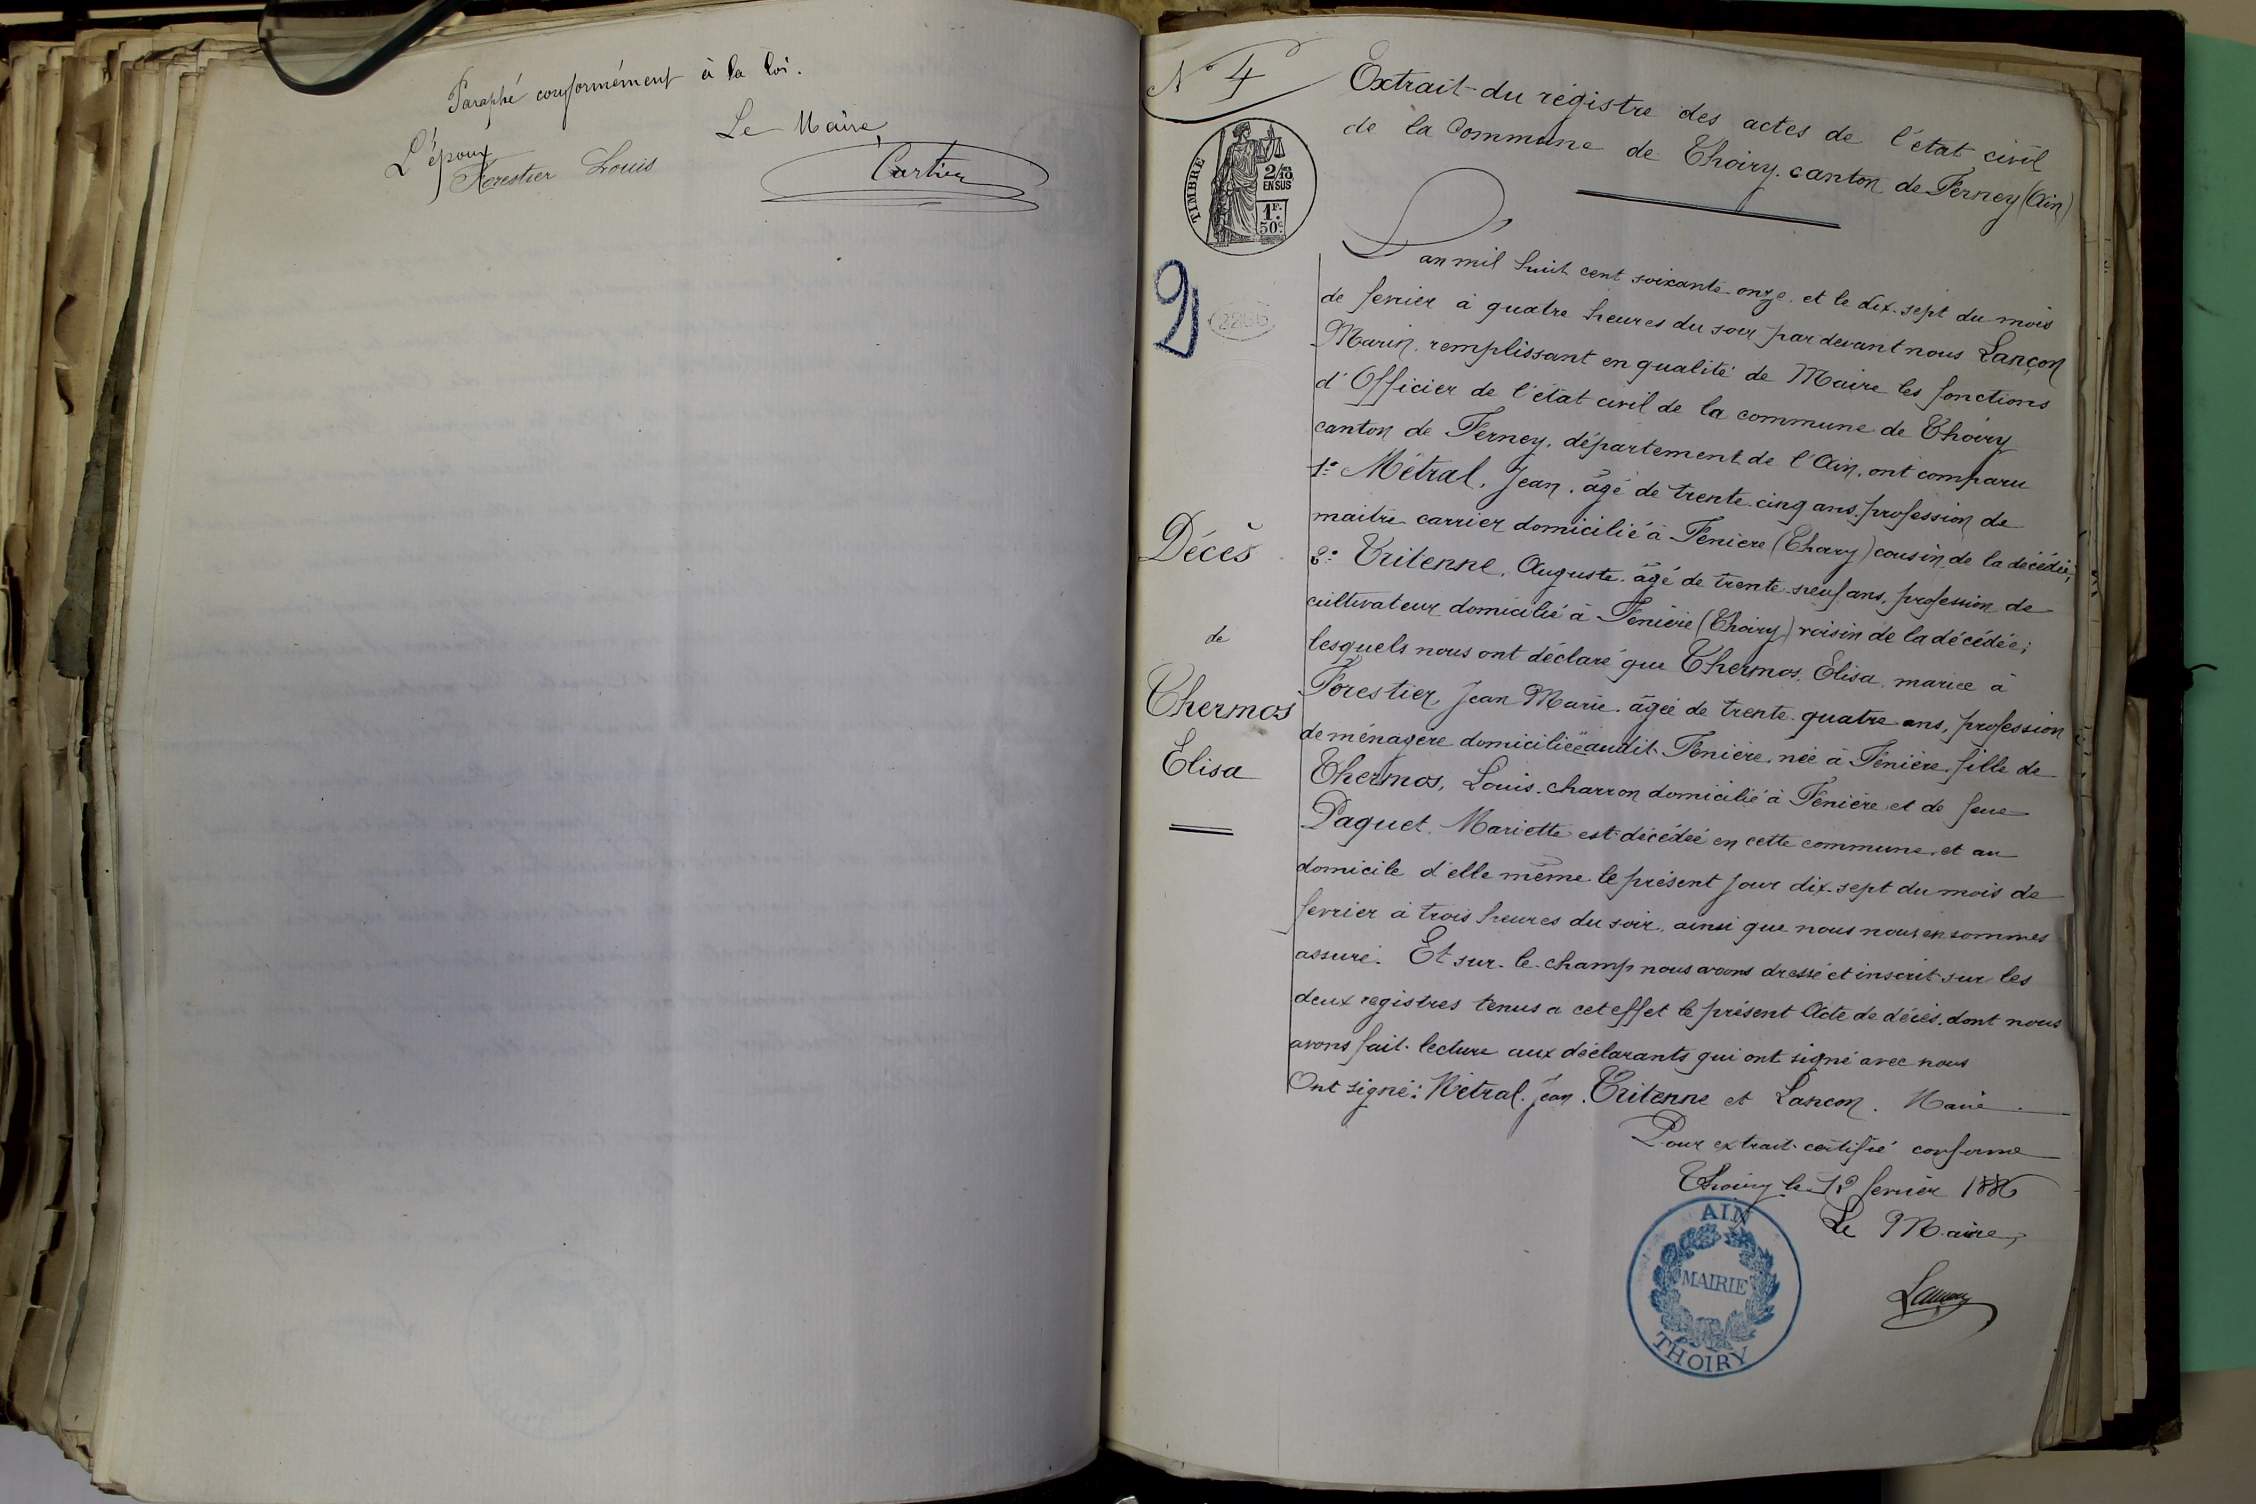 Paraphé conformément à la loi.
L'époux
Le Maire,
Forestier Louis
Cartier
N° 4
Extrait du régistre des actes de l'état civil
de la Commune de Thoiry. canton de Ferney (Ain)
TIMBRE
2/10
EN SUS
1F.
50c
L'an mil huit cent soixante-onze. et le dix-sept du mois
2
de fevrier à quatre heures du soir par devant nous Lançon
Marin. remplissant en qualité de Maire les fonctions
d'Officier de l'état civil de la commune de Thoiry
canton de Ferney. département de l'Ain. ont comparu
1° Métral. Jean. âgé de trente-cinq ans. profession de
maitre carrier domicilié à Fenière (Thoiry) cousin de la décédée;
2° Tritenne. Auguste. âgé de trente-neuf ans, profession de
cultivateur domicilié à Fenière (Thoiry) voisin de la décédée;
lesquels nous ont déclaré que Thermos. Elisa. mariée à
Forestier, Jean Marie. âgée de trente-quatre ans, profession
de ménagère domiciliée audit Fenière, née à Fenière, fille de
Thermos, Louis. charron domicilié à Fenière et de feue
Paquet. Mariette est décédée en cette commune, et au
domicile d'elle même le présent jour dix-sept du mois de
fevrier à trois heures du soir, ainsi que nous nous en sommes
assuré. Et sur-le-champ nous avons dressé et inscrit sur les
deux registres tenus a cet effet le présent Acte de décès. dont nous
avons fait lecture aux déclarants qui ont signé avec nous
Ont signé: Métral. Jean. Tritenne et Lançon.
Décès
de
Thermos
Elisa
Pour extrait certifié conforme
Thoiry le fevrier 1886
Le Maire,
Lançon
AIN
MAIRIE
THOIRY